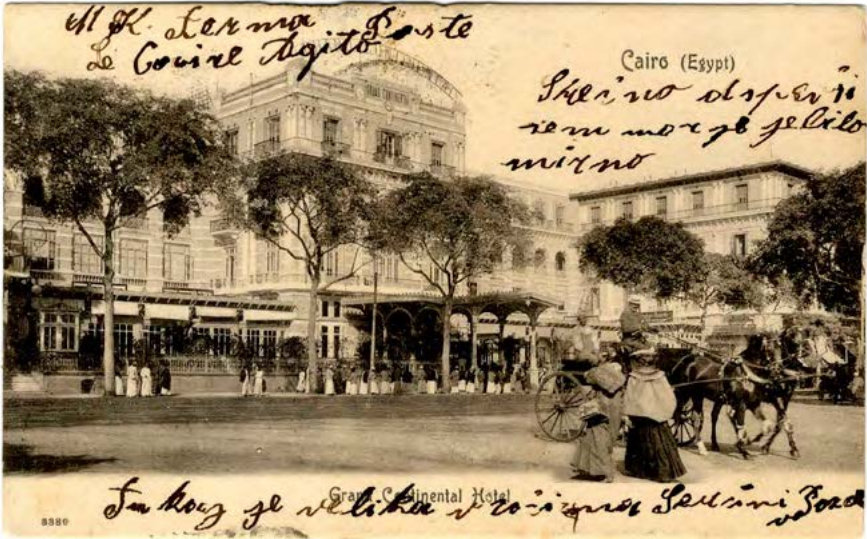 M K. Lerma Poste
Le Cavire Agito
Cairo (Egypt)
Srecno dospeli
sem morje je bilo
mirno
Grand Continental Hotel
Tu kaj je velika vročina Serčni Pozd
8380